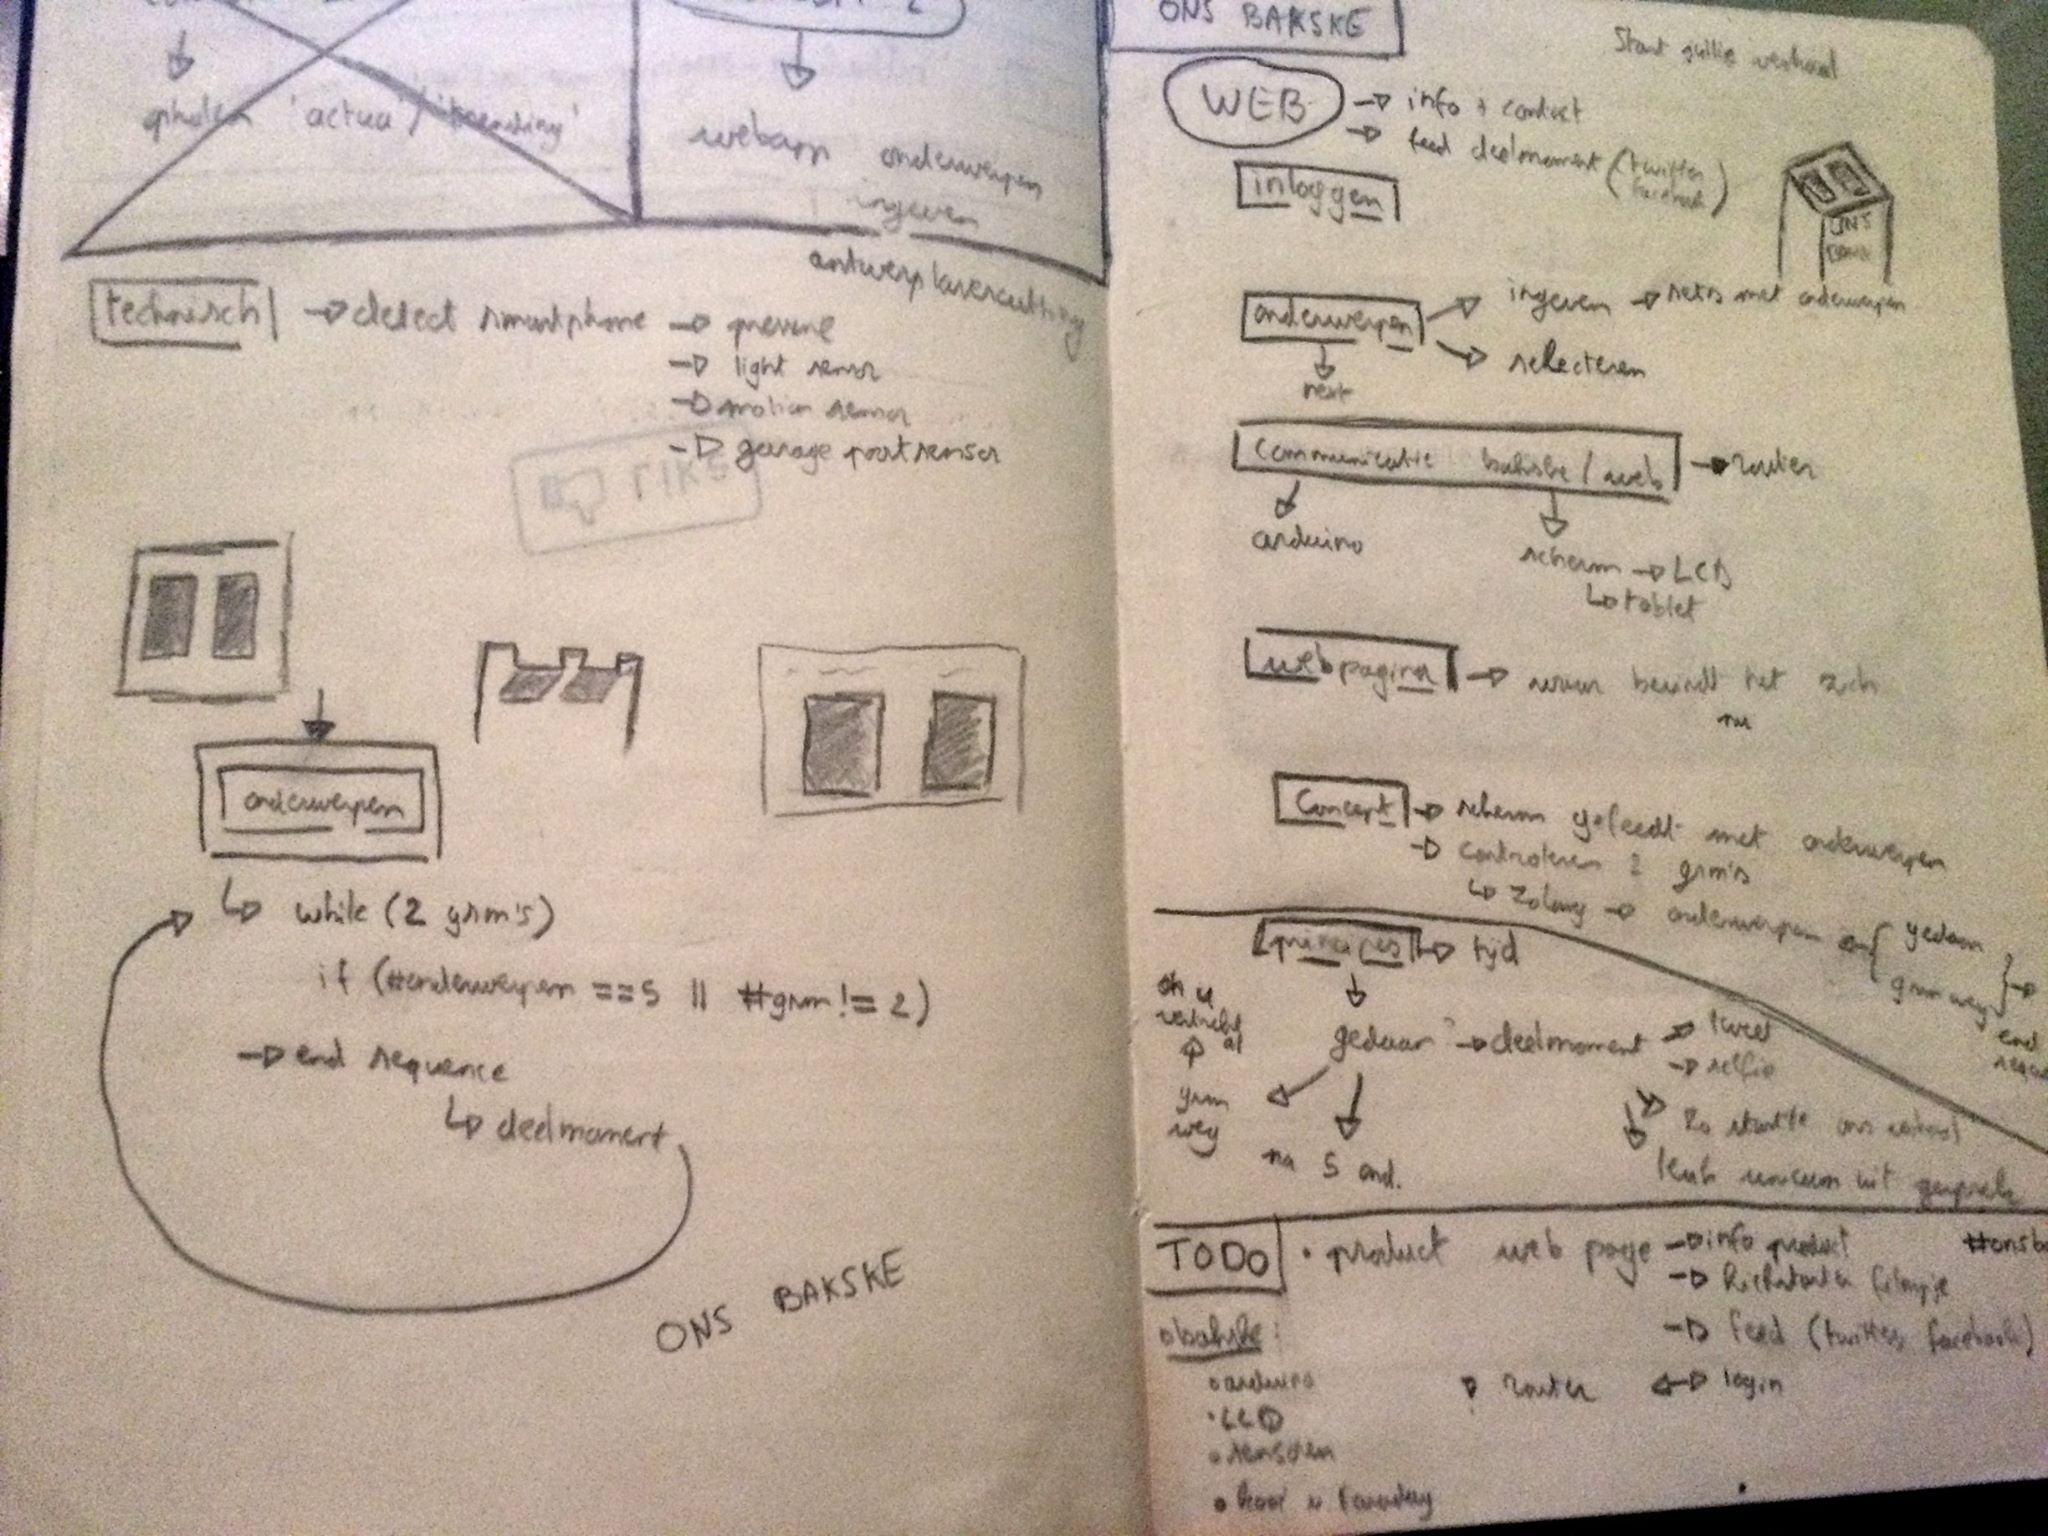 ophalen 'actua'/'trending'
webapp onderwerpen
ingeven
antwerp lasercutting
technisch → detect smartphone → pressure
→ light sensor
→ motion sensor
→ garage poort sensor
LIKE
onderwerpen
↳ while (2 gsm's)
if (#onderwerpen == 5 || #gsm != 2)
→ end sequence
↳ deelmoment
ONS BAKSKE
ONS BAKSKE
Start jullie verhaal
WEB → info + contact
→ feed deelmoment (twitter
facebook)
inloggen
ONS
onderwerpen → ingeven → reeks met onderwerpen
→ selecteren
next
communicatie bakske / web → router
arduino
scherm → LCD
↳ tablet
webpagina → waar bevindt het zich
nu
Concept → scherm gefeedt met onderwerpen
→ controleren 2 gsm's
↳ Zolang → onderwerpen { gedaan
gsm weg } →
end
principes → tijd
oh u
vertrekt
al
gedaan → deelmoment → tweet
→ selfie
gsm
weg
na 5 ond.
Zo startte ons verhaal
leuk unicum uit gesprek
TODO • product web page → info product
→ Kickstarter filmpje
→ feed (twitter, facebook)
bakske:
arduino
• LCD
sensoren
• kooi v faraday
router ↔ login